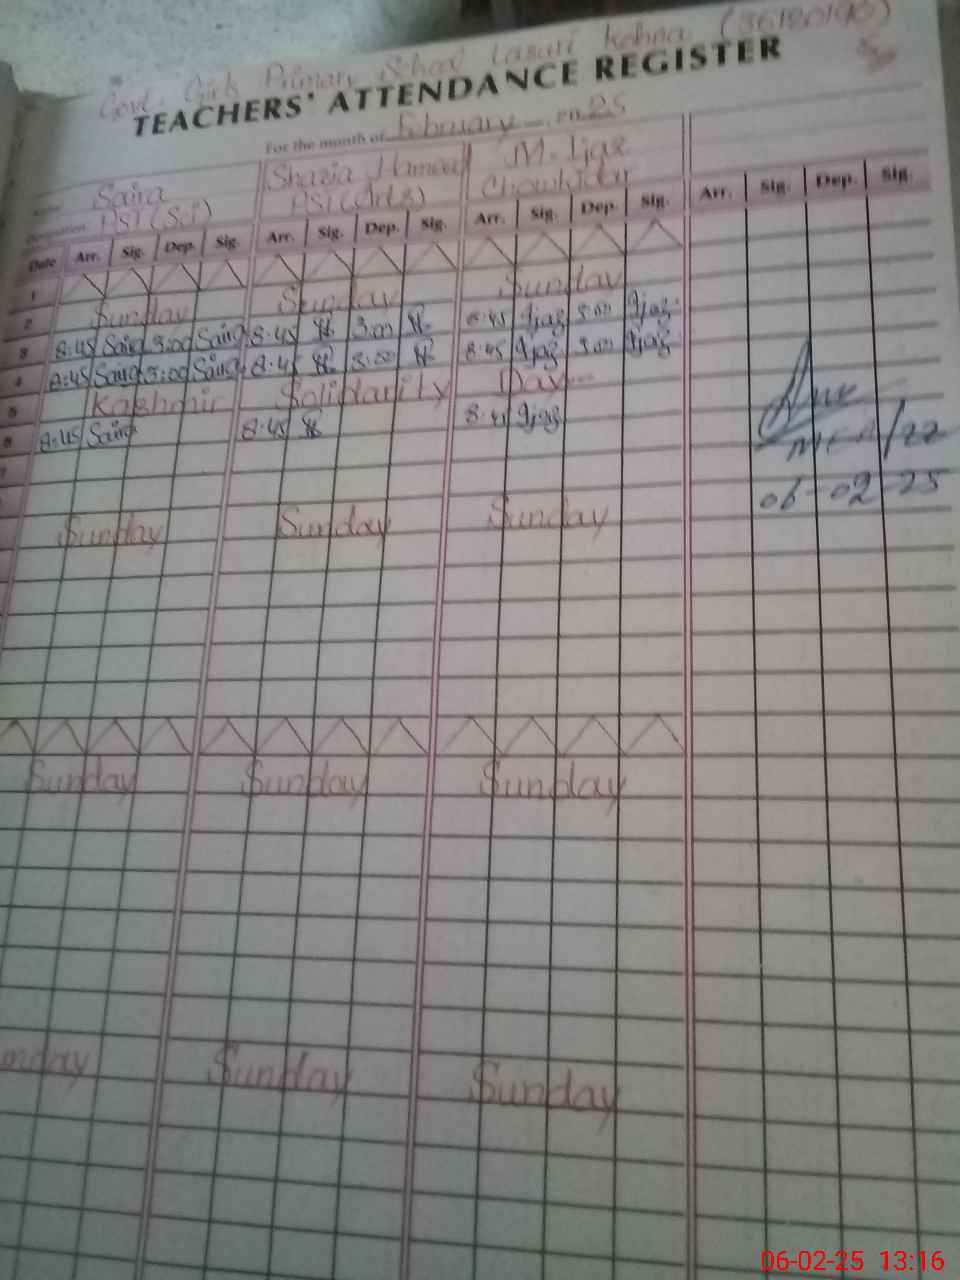 Govt. Girls Primary School Lasuri Kohna (36120190)
TEACHERS' ATTENDANCE REGISTER
For the month of February 2025
Saira Shazia Hameed M. Ijaz
Designation PST (Sci) PST (Arts) Chowkidar
Date Arr. Sig. Dep. Sig. Arr. Sig. Dep. Sig. Arr. Sig. Dep. Sig. Arr. Sig. Dep. Sig.
1
2 Sunday Sunday Sunday
3 8:45 Saira 3:00 Saira 8:45 3:00 8:45 Ijaz 3:00 Ijaz
4 8:45 Saira 3:00 Saira 8:45 3:00 8:45 Ijaz 3:00 Ijaz
5 Kashmir Solidarity Day
6 8:45 Saira 8:45 8:45 Ijaz
MEA/22
7
06-02-25
Sunday Sunday Sunday
Sunday Sunday Sunday
Sunday Sunday
06-02-25 13:16